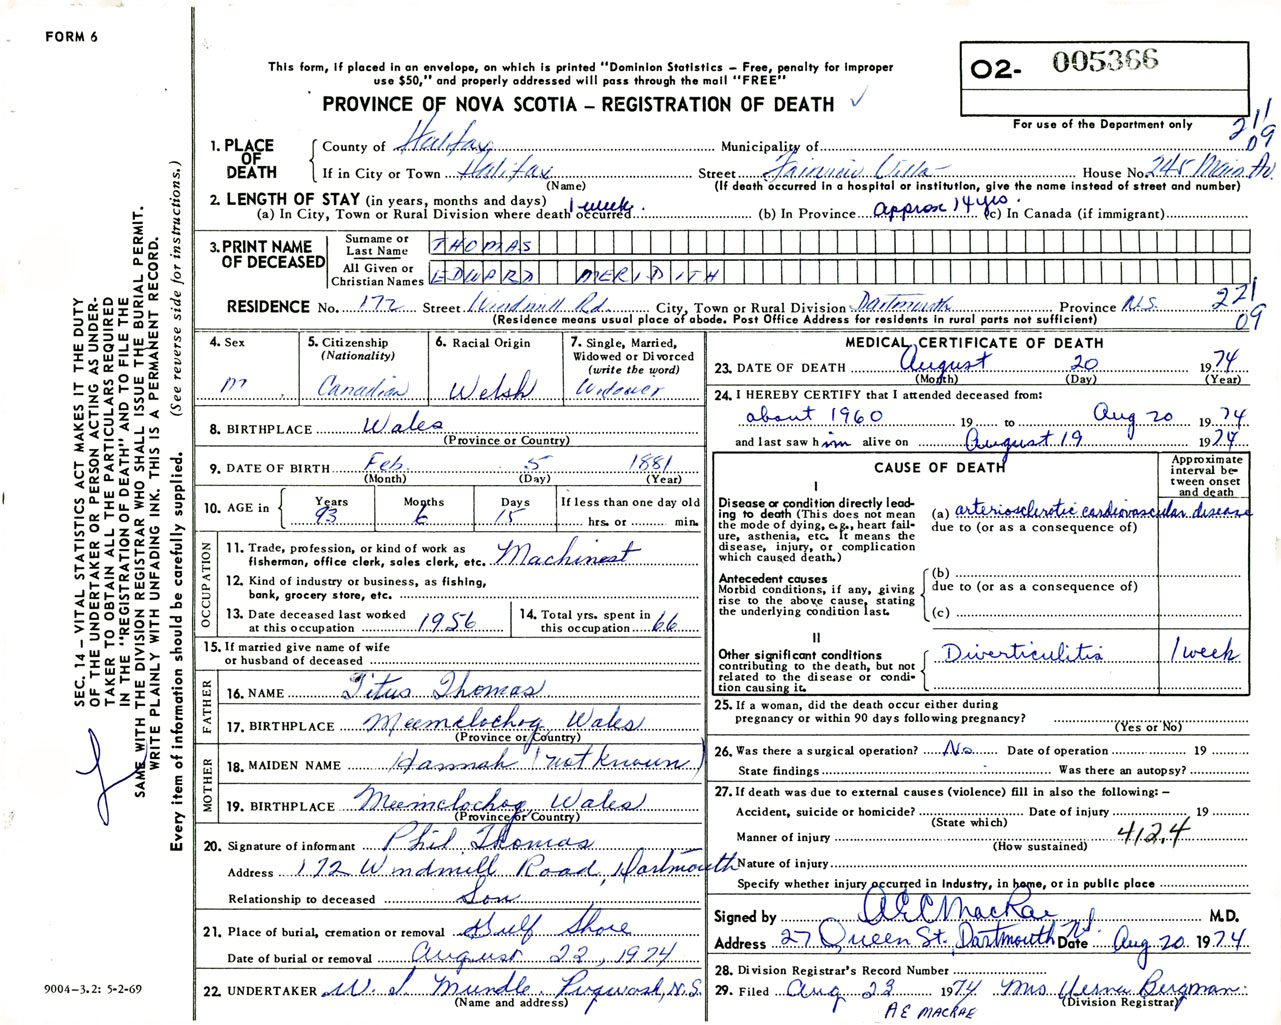 FORM 6
This form, if placed in an envelope, on which is printed "Dominion Statistics – Free, penalty for improper
use $50," and properly addressed will pass through the mail "FREE"
PROVINCE OF NOVA SCOTIA – REGISTRATION OF DEATH ✓
O2- 005366
For use of the Department only
211
09
1. PLACE OF DEATH
County of Halifax Municipality of
If in City or Town Halifax Street Fairview Villa House No. 245 Main Av.
(Name) (If death occurred in a hospital or institution, give the name instead of street and number)
2. LENGTH OF STAY (in years, months and days)
(a) In City, Town or Rural Division where death occurred 1 week. (b) In Province Approx 14 yrs. (c) In Canada (if immigrant)
3. PRINT NAME OF DECEASED
Surname or Last Name THOMAS
All Given or Christian Names EDWARD MERIDITH
RESIDENCE No. 172 Street Windmill Rd. City, Town or Rural Division Dartmouth Province N.S.
(Residence means usual place of abode. Post Office Address for residents in rural parts not sufficient)
221
09
4. Sex
M
5. Citizenship
(Nationality)
Canadian
6. Racial Origin
Welsh
7. Single, Married,
Widowed or Divorced
(write the word)
Widower
8. BIRTHPLACE Wales
(Province or Country)
9. DATE OF BIRTH Feb. 5 1881
(Month) (Day) (Year)
10. AGE in
Years Months Days If less than one day old
93 6 15 hrs. or min.
OCCUPATION
11. Trade, profession, or kind of work as
fisherman, office clerk, sales clerk, etc. Machinest
12. Kind of industry or business, as fishing,
bank, grocery store, etc.
13. Date deceased last worked
at this occupation 1956
14. Total yrs. spent in
this occupation 66
15. If married give name of wife
or husband of deceased
FATHER
16. NAME Titus Thomas
17. BIRTHPLACE Meemclochog Wales
(Province or Country)
MOTHER
18. MAIDEN NAME Hannah (not known)
19. BIRTHPLACE Meemclochog Wales
(Province or Country)
20. Signature of informant Phil Thomas
Address 172 Windmill Road, Dartmouth
Relationship to deceased Son
21. Place of burial, cremation or removal Gulf Shore
Date of burial or removal August 22, 1974
22. UNDERTAKER W. I Mundle Pugwash, N.S.
(Name and address)
MEDICAL CERTIFICATE OF DEATH
23. DATE OF DEATH August 20 1974
(Month) (Day) (Year)
24. I HEREBY CERTIFY that I attended deceased from:
about 1960 19 to Aug 20 1974
and last saw him alive on August 19 1974
CAUSE OF DEATH
Approximate
interval be-
tween onset
and death
I
Disease or condition directly lead-
ing to death (This does not mean
the mode of dying, e.g., heart fail-
ure, asthenia, etc. It means the
disease, injury, or complication
which caused death.)
(a) arteriosclerotic cardiovascular disease
due to (or as a consequence of)
Antecedent causes
Morbid conditions, if any, giving
rise to the above cause, stating
the underlying condition last.
(b)
due to (or as a consequence of)
(c)
II
Other significant conditions
contributing to the death, but not
related to the disease or condi-
tion causing it.
Diverticulitis 1 week
25. If a woman, did the death occur either during
pregnancy or within 90 days following pregnancy?
(Yes or No)
26. Was there a surgical operation? No Date of operation 19
State findings Was there an autopsy?
27. If death was due to external causes (violence) fill in also the following: –
Accident, suicide or homicide? Date of injury 19
(State which)
Manner of injury 412.4
(How sustained)
Nature of injury
Specify whether injury occurred in industry, in home, or in public place
Signed by A E C MacRae M.D.
Address 27 Queen St. Dartmouth N.S. Date Aug 20 1974
28. Division Registrar's Record Number
29. Filed Aug 23 1974 Mrs Verna Bergman
(Division Registrar)
A E MACRAE
SEC. 14 – VITAL STATISTICS ACT MAKES IT THE DUTY
OF THE UNDERTAKER OR PERSON ACTING AS UNDER-
TAKER TO OBTAIN ALL THE PARTICULARS REQUIRED
IN THE "REGISTRATION OF DEATH" AND TO FILE THE
SAME WITH THE DIVISION REGISTRAR WHO SHALL ISSUE THE BURIAL PERMIT.
WRITE PLAINLY WITH UNFADING INK. THIS IS A PERMANENT RECORD.
Every item of information should be carefully supplied. (See reverse side for instructions.)
9004-3.2: 5-2-69